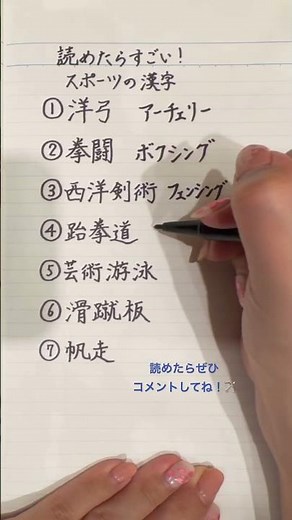 読めたらすごい！
スポーツの漢字
①洋弓 アーチェリー
②拳闘 ボクシング
③西洋剣術 フェンシング
④跆拳道
⑤芸術游泳
⑥滑蹴板
⑦帆走
読めたらぜひ
コメントしてね！